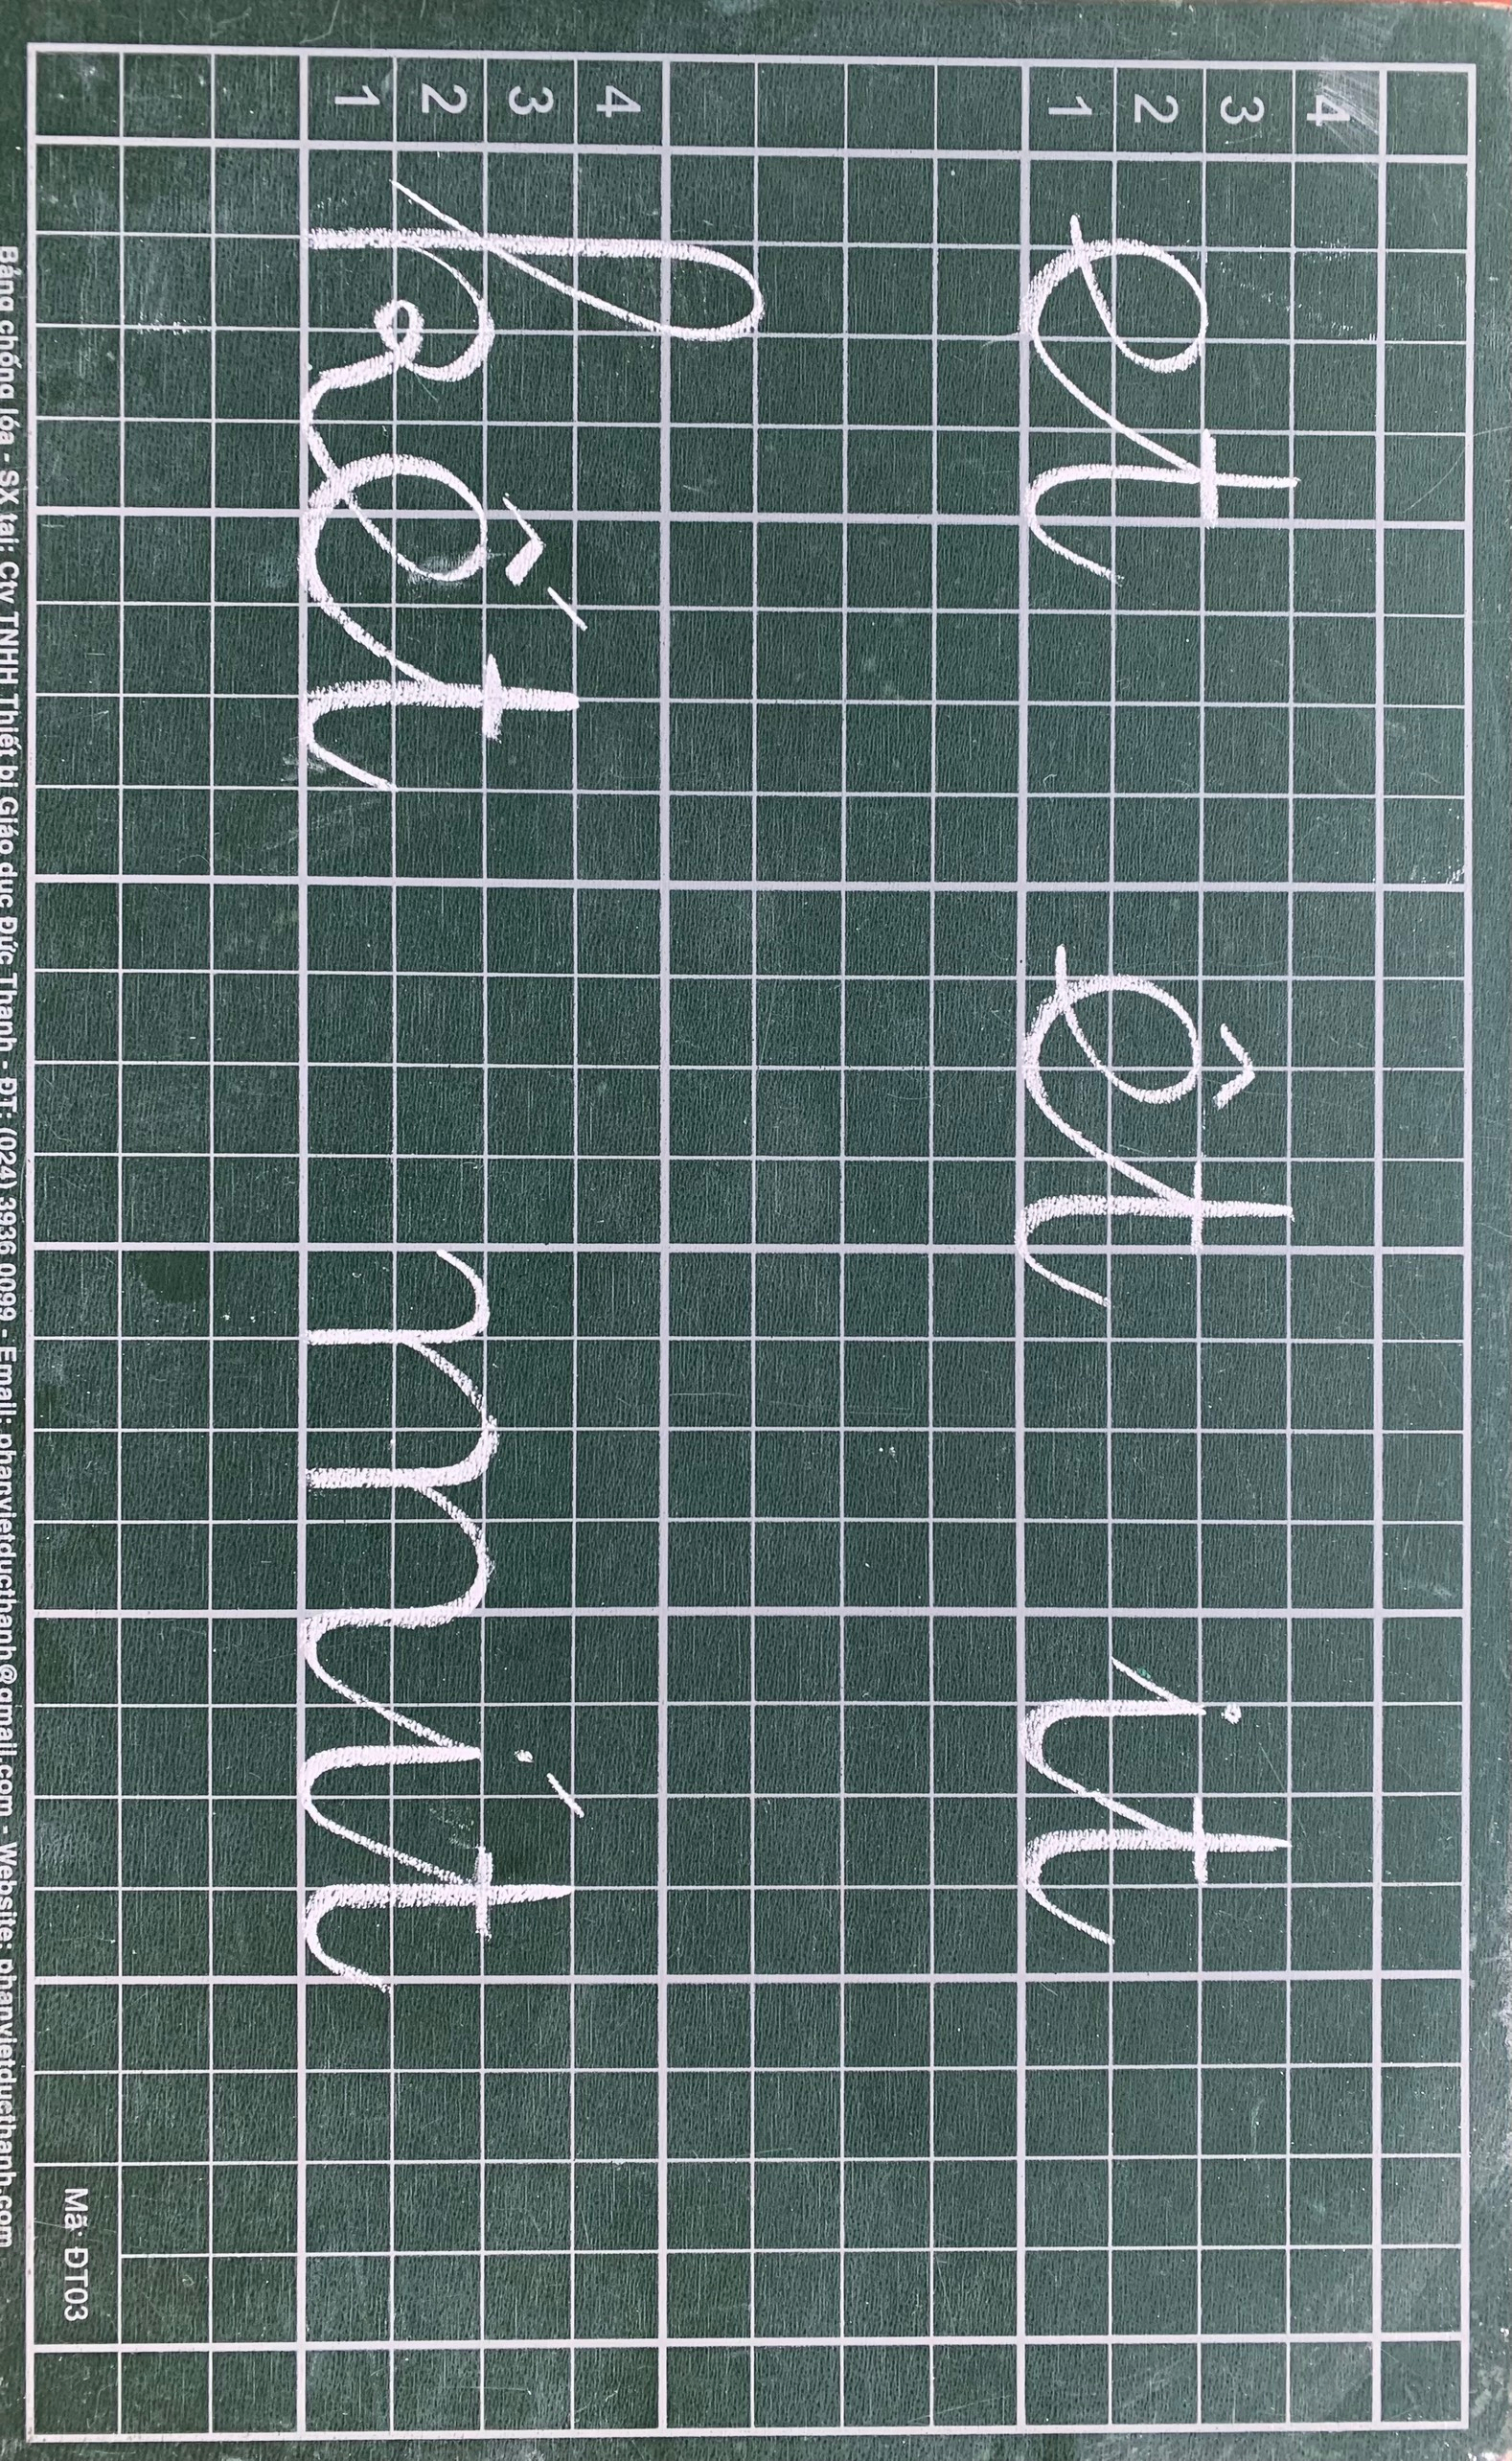 4
3
2
1
et êt it
4
3
2
1
kết mít
Mã: ĐT03
Bảng chống lóa - SX tại: Cty TNHH Thiết bị Giáo dục Đức Thanh - ĐT: (024) 3936 0099 - Email: phanvietducthanh@gmail.com - Website: phanvietducthanh.com